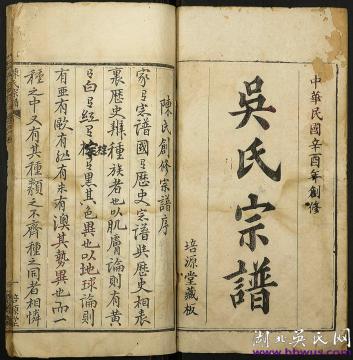 中華民國辛酉年創修
吳氏宗譜
培源堂藏板
陳氏創修宗譜序
家有宗譜國有歷史宗譜與歷史相表
裏歷史辨種族者也以肌膚論則有黃
有白有紅有棕有黑其色異也以地球論則
有亞有歐有有有澳其勢異也而一
種之中又有其種類之不齊種之同者相憐
氏宗譜
一
培源堂
湖北吴氏网
www.hbwus.com